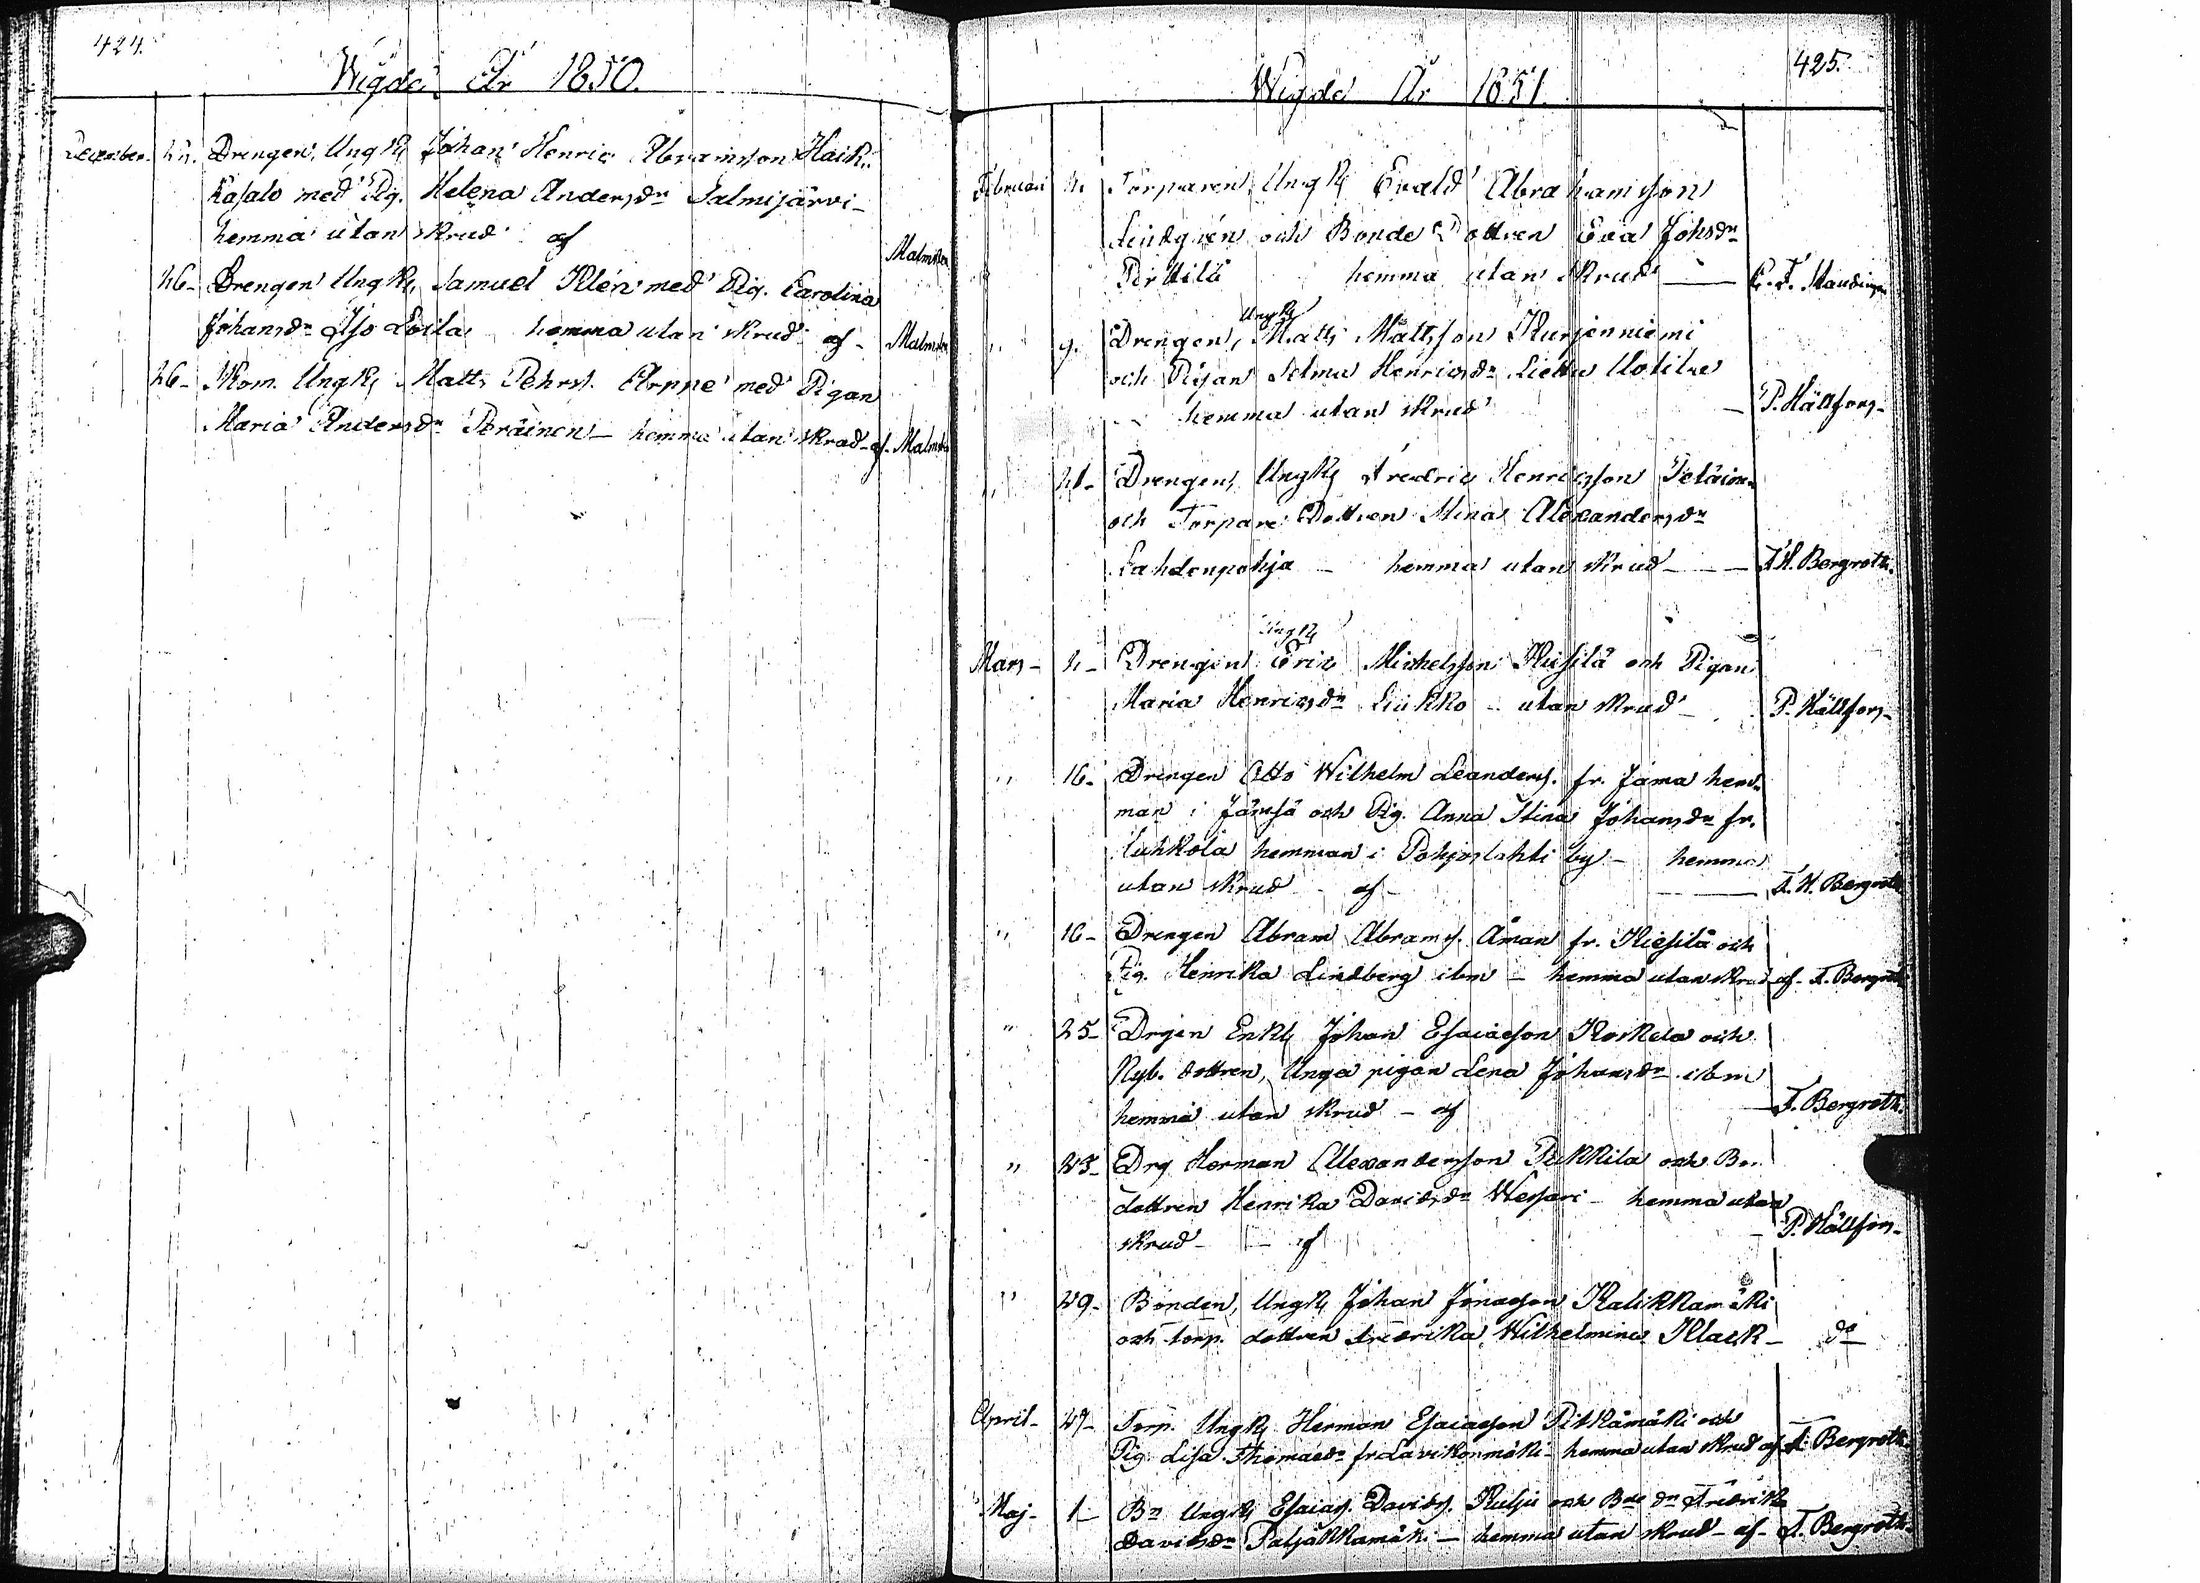 424.
Wigde År 1850.
December. Drengen, Ungk Johan Henric Abramsson Haik
kasalo med Pig. Helena Andersdr Salmijärvi
hemma utan skrud af Malmsten
26- Drengen Ungk, Samuel Klén med Pig. Carolina
Johansdr Iso Loila hemma utan skrud af - Malmsten
26- Skom. Ungk, Matts Pehrss. Arppe med Pigan
Maria Andersdr Peräinen - hemma utan skrud - af - Malmsten
425.
Wigde År 1851.
Februari 2. Torparen, Ungk Evald Abrahamsson
Lindqvén och Bonde Dottren Eva Johsdr
Pirttilä hemma utan skrud —
" 9. Drengen, Ungk Matts Mattsson Kurjenniemi
och Pigan Selma Henricsdr Uotila
hemma utan skrud — P. Hällfors -
" 21- Drengen, Ungk Fredric Henricsson
och Torpare Dottren Mina Alexandersdr
Lahdenpohja - hemma utan skrud - - - F.H. Bergroth.
Mars - 2- Drengen Ungk Eric Michelsson Kiesilä och Pigan
Maria Henricsdr Liukko - utan skrud - P. Hällfors -
" 16- Drengen Otto Wilhelm Leanders. fr. Jämsä hem-
man i Jämsä och Pig. Anna Stina Johansdr fr.
Luhkola hemman i Pohjoslahti by - hemma
utan skrud - af - — F. H. Bergroth
" 16- Drengen Abram Abrams. Åman fr. Kiesilä och
Pig. Henrika Lindberg ibm - hemma utan skrud af - F. Bergroth
" 25- Drgen Enkl Johan Esaiasson Koskela och
Nyb. dottren, Unga pigan Lena Johansdr ibm
hemma utan skrud - af - F. Bergroth.
" 25- Drg Herman Alexandersson Pukkila och Bo.
dottren Henrika Davidsdr Wessari - hemma utan
skrud - - af - P. Hällfors -
" 29- Bonden, Ungk Johan Jonasson Kalikkamäki
och torp. dottren Fredrika Wilhelmina Klack - do
April - 27- Torp. Ungk Herman Esaiasson Pitkämäki och
Pig. Lisa Thomasdr fr. Lavikonmäki - hemma utan skrud af F. Bergroth.
Maj - 1- Bn Ungk Esaias Davids. Kulju och Bde dr Fredrika
Davidsdr Paljakkamäk. - hemma utan skrud - af - F. Bergroth.